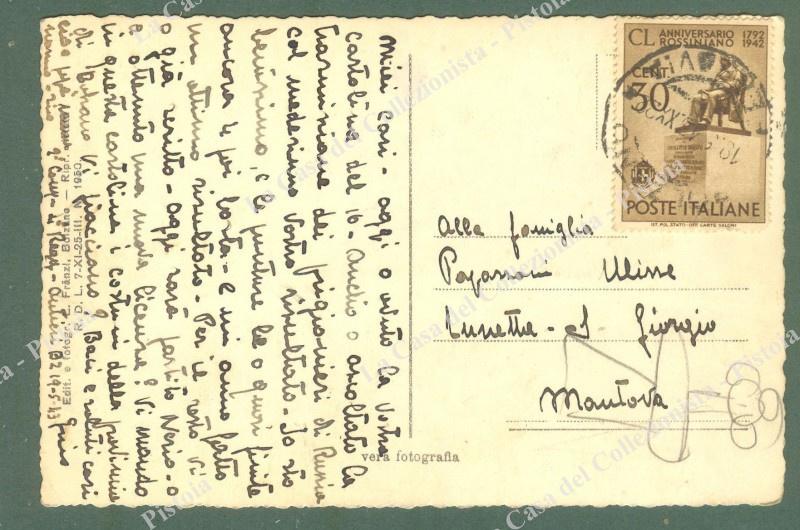 Miei cari - aggi o avuto la vostra
cartolina del 16 - Anchio o ascoltato la
trasmissione dei prigionieri di Russia
col medesimo vostro risultato - Io sto
benissimo, e le punture le o quasi finite
ancora 4 poi basta - e mi anno fatto
un ottimo risultato - Per il resto vi
o già scritto - oggi sarà partito Nerio - o
o ottenuto una nuova licenza? Vi mando
in questa cartolina i costumi della provincia
di Bolzano Vi piacciono? Baci e saluti cari
Edit. e fotogr. L. Fränzl, Bolzano. — Ripr.
R. D. L. 7-XI-25-III. 1930.
vera fotografia
CL ANNIVERSARIO 1792
ROSSINIANO 1942
CENT.
30
POSTE ITALIANE
IST. POL. STATO - OFF. CARTE VALORI
Alla famiglia
Ulisse
Lunetta - S Giorgio
Mantova
La Casa del Collezionista - Pistoia